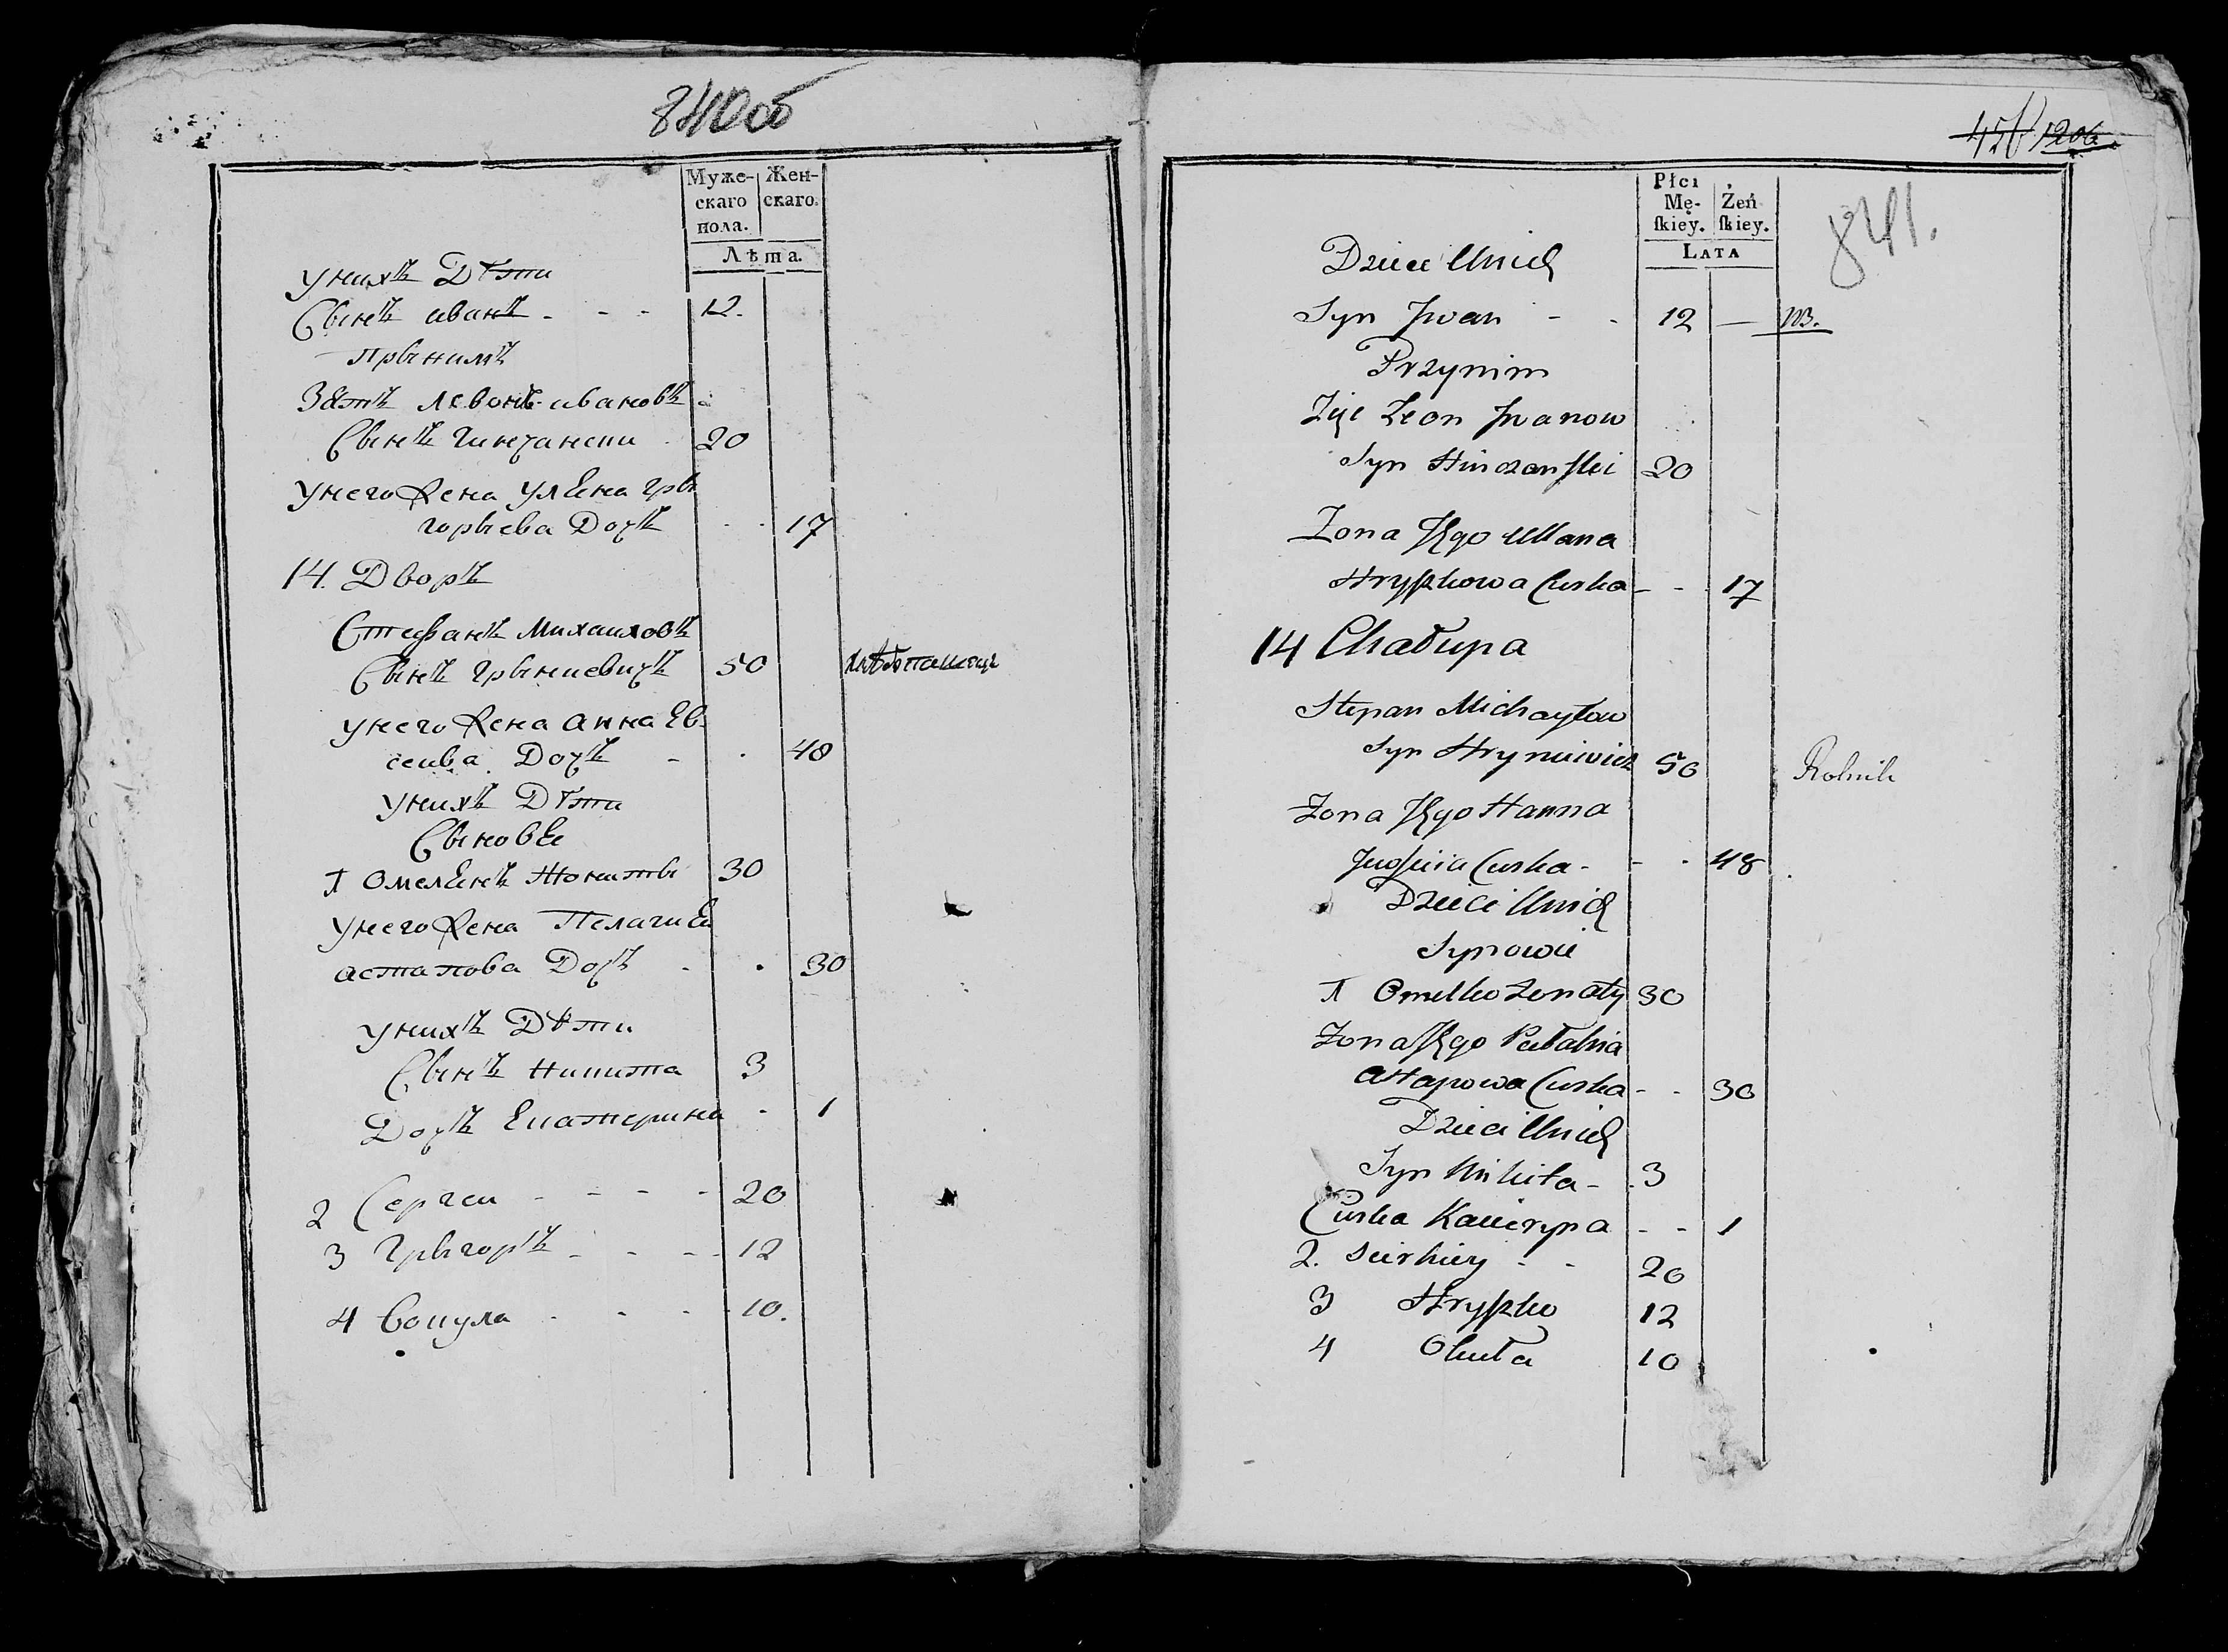 840об
Муже- Жен-
скаго скаго.
пола.
Лѣта.
Унихъ Дѣти
Сынъ иванъ - - - 12.
Прынимъ
Зять Левонъ ивановъ
Сынъ 20
Унего жена Улѣна Гры
горыева Дочъ - - 17
14. Дворъ
Стефанъ Михаиловъ
Сынъ Грыневичъ 50 хлѣбопашецъ
Унего жена анна Ев-
сеива Дочъ - - 48
Унихъ Дѣти
Сыновѣ
1 Омелѣнъ 30
Унего жена Пелагиѣ
астапова Дочъ - - 30
Унихъ Дѣти
Сынъ Никита 3
Дочъ Екатерина - 1
2 Сергеи - - - - 20
3 Грыгоръ - - - - 12
4 Вакула - - - 10.
1206.
841.
Płci
Mę- Żeń
ſkiey. ſkiey.
LATA
Dzieci Unich
Syn Jwan - - 12 —
Przynim
Zięć Leon Jwanow
Syn Hinczanſki 20
Żona Jego Ullana
Hryſzkowa Curka - - 17
14 Chałupa
Stepan Michayłow
Syn Hryniewicz 50 Rolnik
Żona Jego Hanna
Curka - - - 48
Dzieci Unich
Synowie
1 Omelko żonaty 30
Żona Jego Pałahia
Astapowa Curka - - 30
Dzieci Unich
Syn Mikita - 3
Curka Kacieryna - - 1
2. Sierhiey - - 20
3 Hryſzko 12
4 10